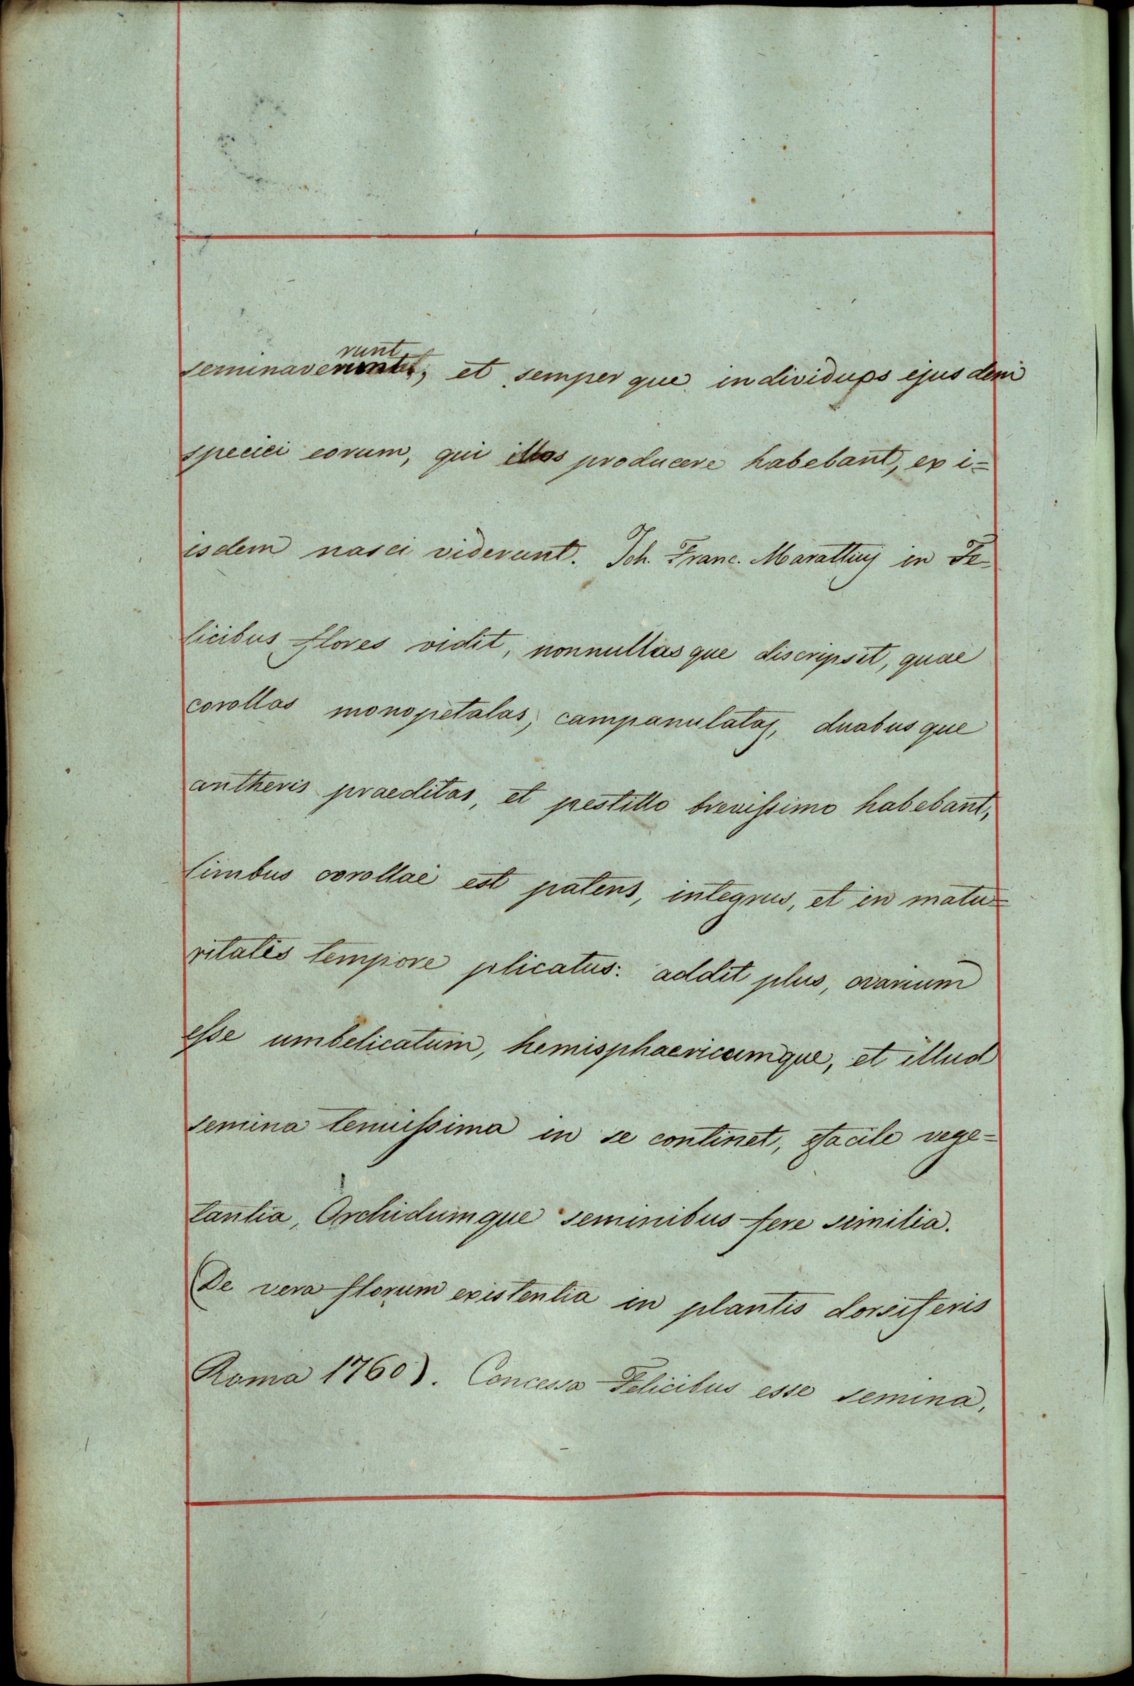 seminaverunt, et semperque individups ejusdem
speciei eorum, qui illos producere habebant, ex i=
isdem nasci viderunt. Joh. Franc. Marattius in Fe-
licibus flores vidit, nonnullasque discripsit, quae
corollas monopetalas, campanulatas, duabusque
antheris praeditas, et pestillo brevissimo habebant,
limbus corollae est patens, integrus, et in matu=
ritatis tempore plicatus: addit plus, ovarium
esse umbelicatum, hemisphaericumque, et illud
semina tenuissima in se continet, facile vege=
tantia, Orchidumque seminibus fere similia.
(De vera florum existentia in plantis dorsiferis
Roma 1760). Concessa Felicibus esse semina,